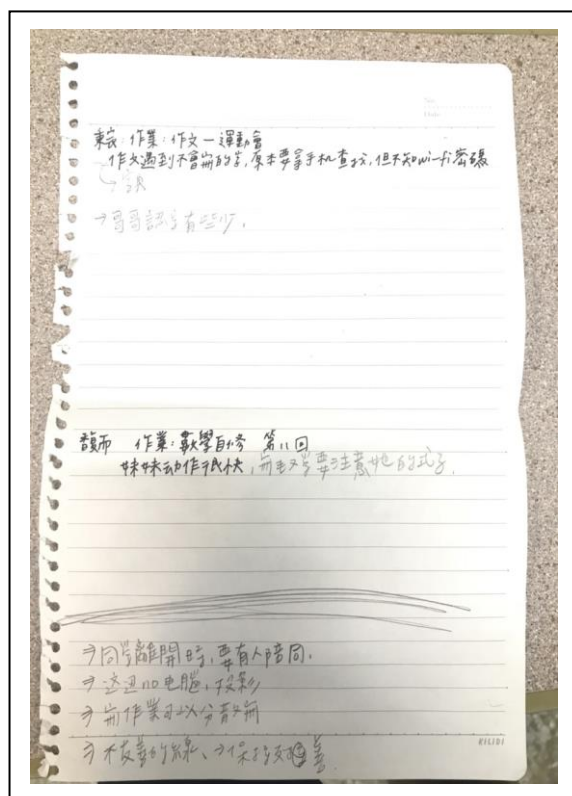 No.
Date
東宸 作業:作文一運動會
作文遇到不會寫的字,原本要拿手机查找,但不知wi-fi密碼
字
哥哥認字有些少。
馥而 作業:數學自修 第11回
妹妹动作很快,需要注意她的式子.
⇒同學離開時,要有人陪同.
⇒这边no电脑,投影
⇒ 作業可以分散
⇒不友善的 、→保持友善
KILIDI